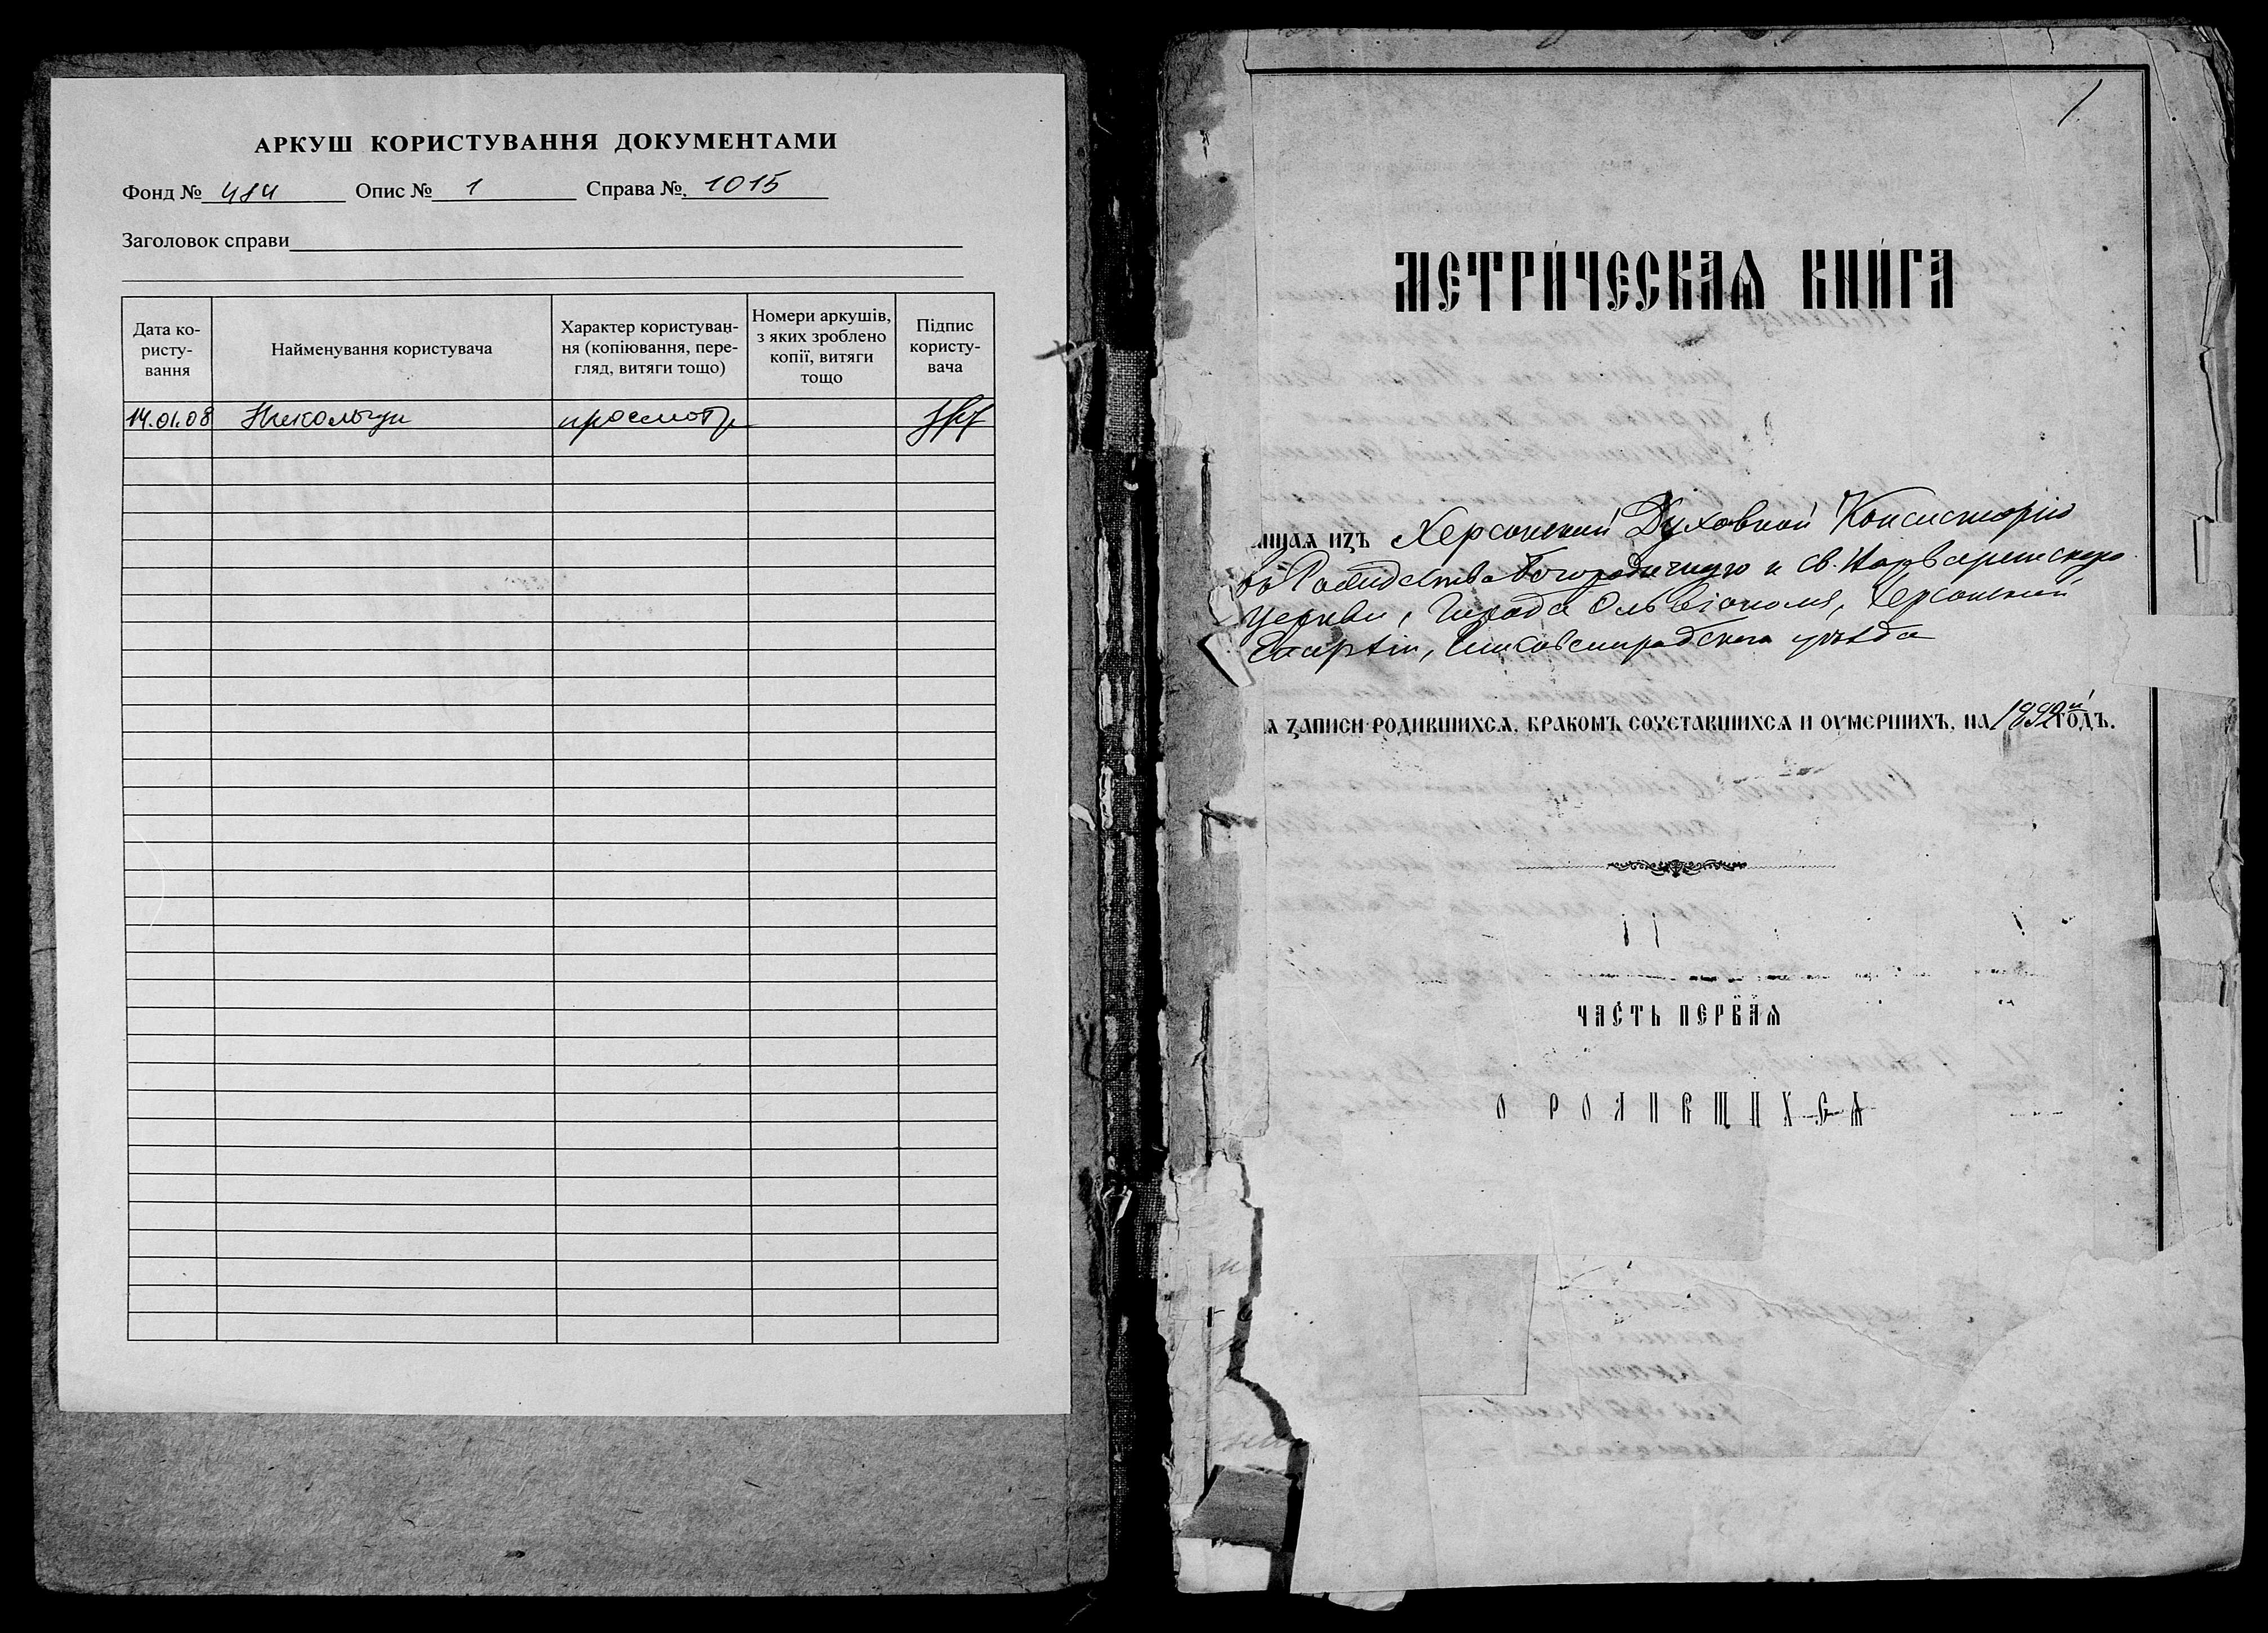 АРКУШ КОРИСТУВАННЯ ДОКУМЕНТАМИ
Фонд № 484 Опис № 1 Справа № 1015
Заголовок справи
Дата ко-
ристу-
вання
Найменування користувача
Характер користуван-
ня (копіювання, пере-
гляд, витяги тощо)
Номери аркушів,
з яких зроблено
копії, витяги
тощо
Підпис
користу-
вача
14.01.08 просмотр
1
МЕТРИ́ЧЕСКАѦ КНИ́ГА
ннаѧ изъ Херсонской Духовной Консисторіи
въ Рождества Богородичную и св.
церкви, города Ольвіополя, Херсонской
Епархіи, Елисаветградскаго уѣзда
ѧ записи родившихсѧ, бракомъ сочетавшихсѧ и оумершихъ, на 1892й годъ.
ЧАСТЬ ПЕРВАѦ
О РОДИВШИХСѦ